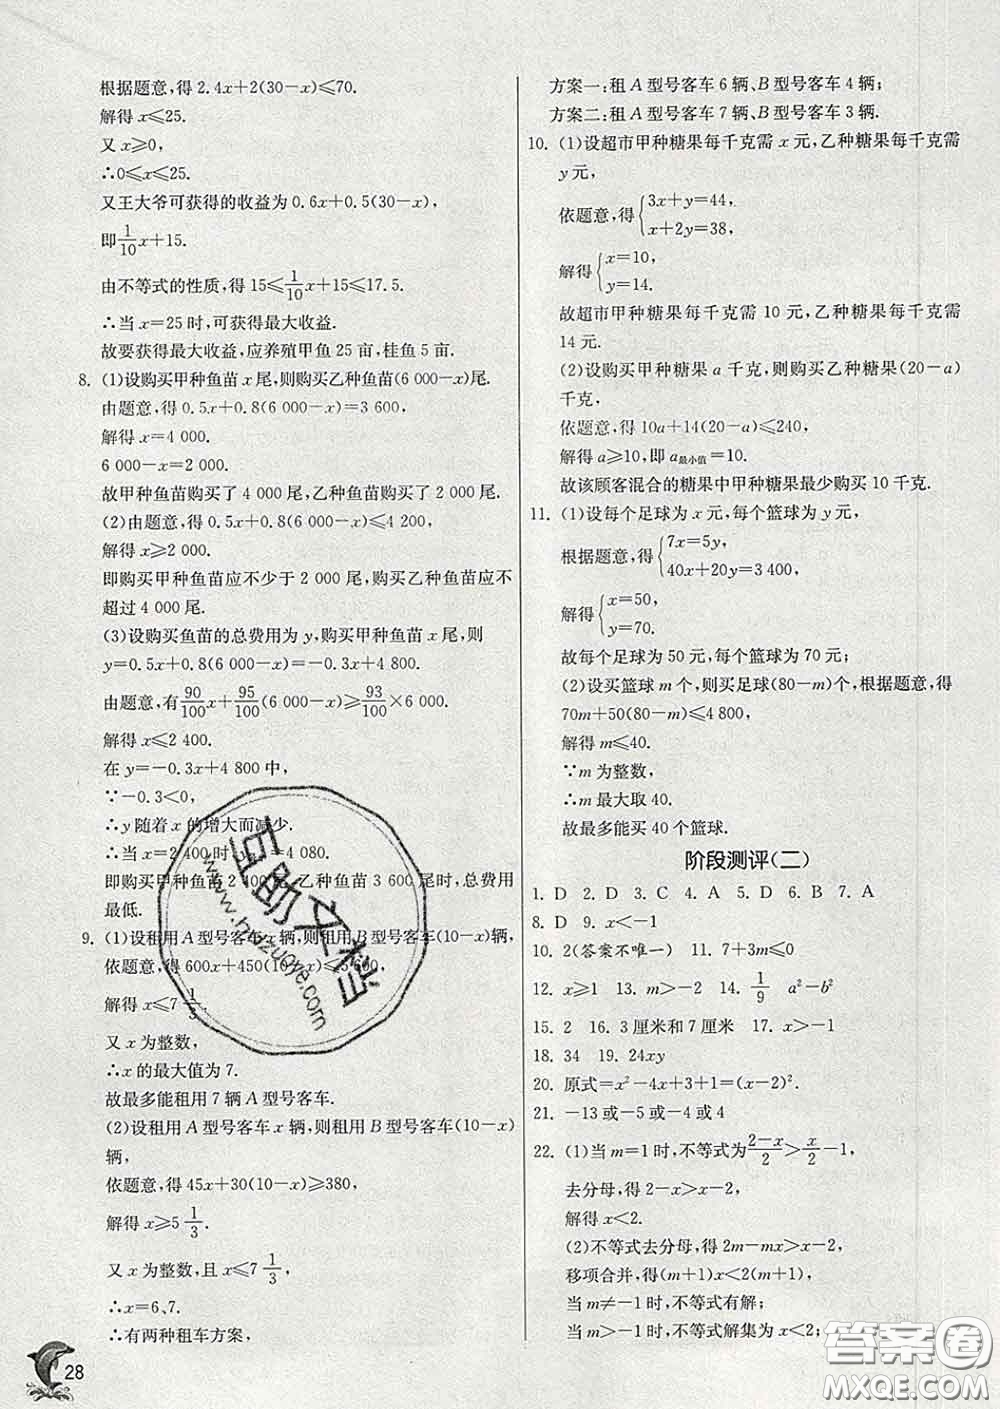 根据题意,得 2.4x+2(30-x)≤70.
解得 x≤25.
又 x≥0,
∴0≤x≤25.
又王大爷可获得的收益为 0.6x+0.5(30-x),
即 1/10 x+15.
由不等式的性质,得 15≤1/10 x+15≤17.5.
∴当 x=25 时,可获得最大收益.
故要获得最大收益,应养殖甲鱼 25 亩,桂鱼 5 亩.
8. (1)设购买甲种鱼苗 x 尾,则购买乙种鱼苗(6 000-x)尾.
由题意,得 0.5x+0.8(6 000-x)=3 600,
解得 x=4 000.
6 000-x=2 000.
故甲种鱼苗购买了 4 000 尾,乙种鱼苗购买了 2 000 尾.
(2)由题意,得 0.5x+0.8(6 000-x)≤4 200,
解得 x≥2 000.
即购买甲种鱼苗应不少于 2 000 尾,购买乙种鱼苗应不
超过 4 000 尾.
(3)设购买鱼苗的总费用为 y,购买甲种鱼苗 x 尾,则
y=0.5x+0.8(6 000-x)=-0.3x+4 800.
由题意,有 90/100 x+95/100(6 000-x)≥93/100×6 000.
解得 x≤2 400.
在 y=-0.3x+4 800 中,
∵-0.3<0,
∴y 随着 x 的增大而减少.
∴当 x=2 400 时, =4 080.
即购买甲种鱼苗 2 400 尾,乙种鱼苗 3 600 尾时,总费用
最低.
9. (1)设租用 A 型号客车 x 辆,则租用 B 型号客车(10-x)辆,
依题意,得 600x+450(10-x)≤5 600,
解得 x≤7 1/3.
又 x 为整数,
∴x 的最大值为 7.
故最多能租用 7 辆 A 型号客车.
(2)设租用 A 型号客车 x 辆,则租用 B 型号客车(10-x)
辆,
依题意,得 45x+30(10-x)≥380,
解得 x≥5 1/3.
又 x 为整数,且 x≤7 1/3,
∴x=6、7.
∴有两种租车方案,
28
方案一:租 A 型号客车 6 辆、B 型号客车 4 辆;
方案二:租 A 型号客车 7 辆、B 型号客车 3 辆.
10. (1)设超市甲种糖果每千克需 x 元,乙种糖果每千克需
y 元,
依题意,得 { 3x+y=44,
x+2y=38,
解得 { x=10,
y=14.
故超市甲种糖果每千克需 10 元,乙种糖果每千克需
14 元.
(2)设购买甲种糖果 a 千克,则购买乙种糖果(20-a)
千克,
依题意,得 10a+14(20-a)≤240,
解得 a≥10,即 a最小值=10.
故该顾客混合的糖果中甲种糖果最少购买 10 千克.
11. (1)设每个足球为 x 元,每个篮球为 y 元,
根据题意,得 { 7x=5y,
40x+20y=3 400,
解得 { x=50,
y=70.
故每个足球为 50 元,每个篮球为 70 元;
(2)设买篮球 m 个,则买足球(80-m)个,根据题意,得
70m+50(80-m)≤4 800,
解得 m≤40.
∵m 为整数,
∴m 最大取 40.
故最多能买 40 个篮球.
阶段测评(二)
1. D 2. D 3. C 4. A 5. D 6. B 7. A
8. D 9. x<-1
10. 2(答案不唯一) 11. 7+3m≤0
12. x≥1 13. m>-2 14. 1/9 a²-b²
15. 2 16. 3 厘米和 7 厘米 17. x>-1
18. 34 19. 24xy
20. 原式=x²-4x+3+1=(x-2)².
21. -13 或-5 或-4 或 4
22. (1)当 m=1 时,不等式为 (2-x)/2>x/2-1,
去分母,得 2-x>x-2,
解得 x<2.
(2)不等式去分母,得 2m-mx>x-2,
移项合并,得(m+1)x<2(m+1),
当 m≠-1 时,不等式有解;
当 m>-1 时,不等式解集为 x<2;
互助文档
www.hdzuoye.com
答案圈
MXQE.COM